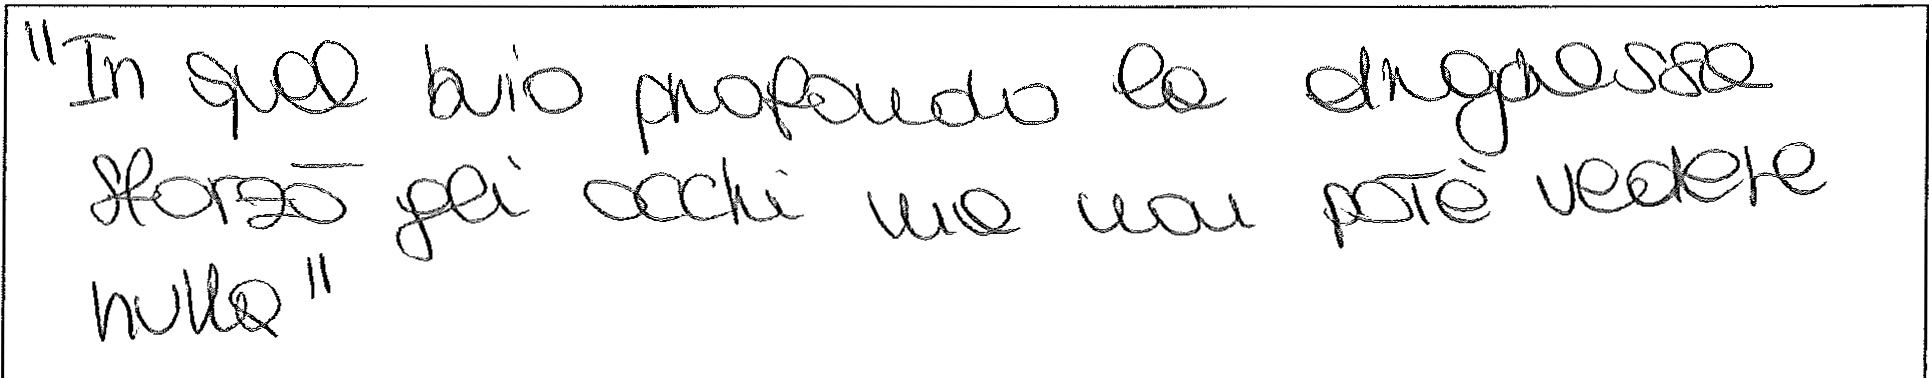 "In quel buio profondo la
sforzò gli occhi ma non potè vedere
nulla"